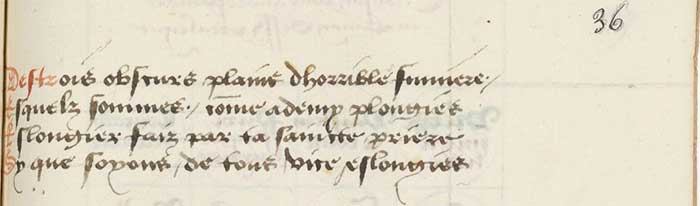 36
Destrois obscurs plains dhorrible fumiere
squelz sommes, cõme ademy plongies
slongier faiz par ta saincte priere
y que soyons, de tous vice eslongies